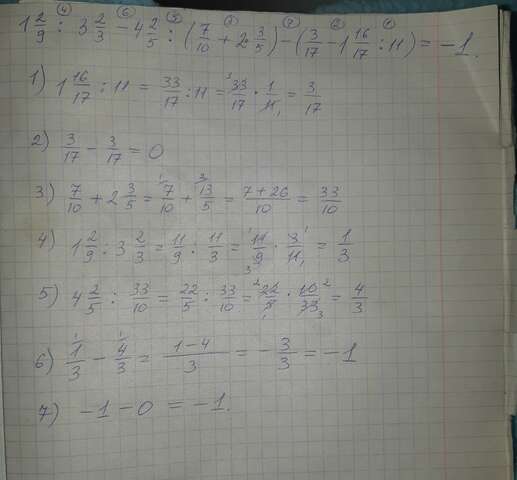 1 2/9 : 3 2/3 - 4 2/5 : (7/10 + 2 3/5) - (3/17 - 1 16/17 : 11) = -1.
1) 1 16/17 : 11 = 33/17 : 11 = 33/17 · 1/11 = 3/17
2) 3/17 - 3/17 = 0
3) 7/10 + 2 3/5 = 7/10 + 13/5 = 7+26/10 = 33/10
4) 1 2/9 : 3 2/3 = 11/9 : 11/3 = 11/9 · 3/11 = 1/3
5) 4 2/5 : 33/10 = 22/5 : 33/10 = 22/5 · 10/33 = 4/3
6) 1/3 - 4/3 = 1-4/3 = -3/3 = -1
7) -1 - 0 = -1.